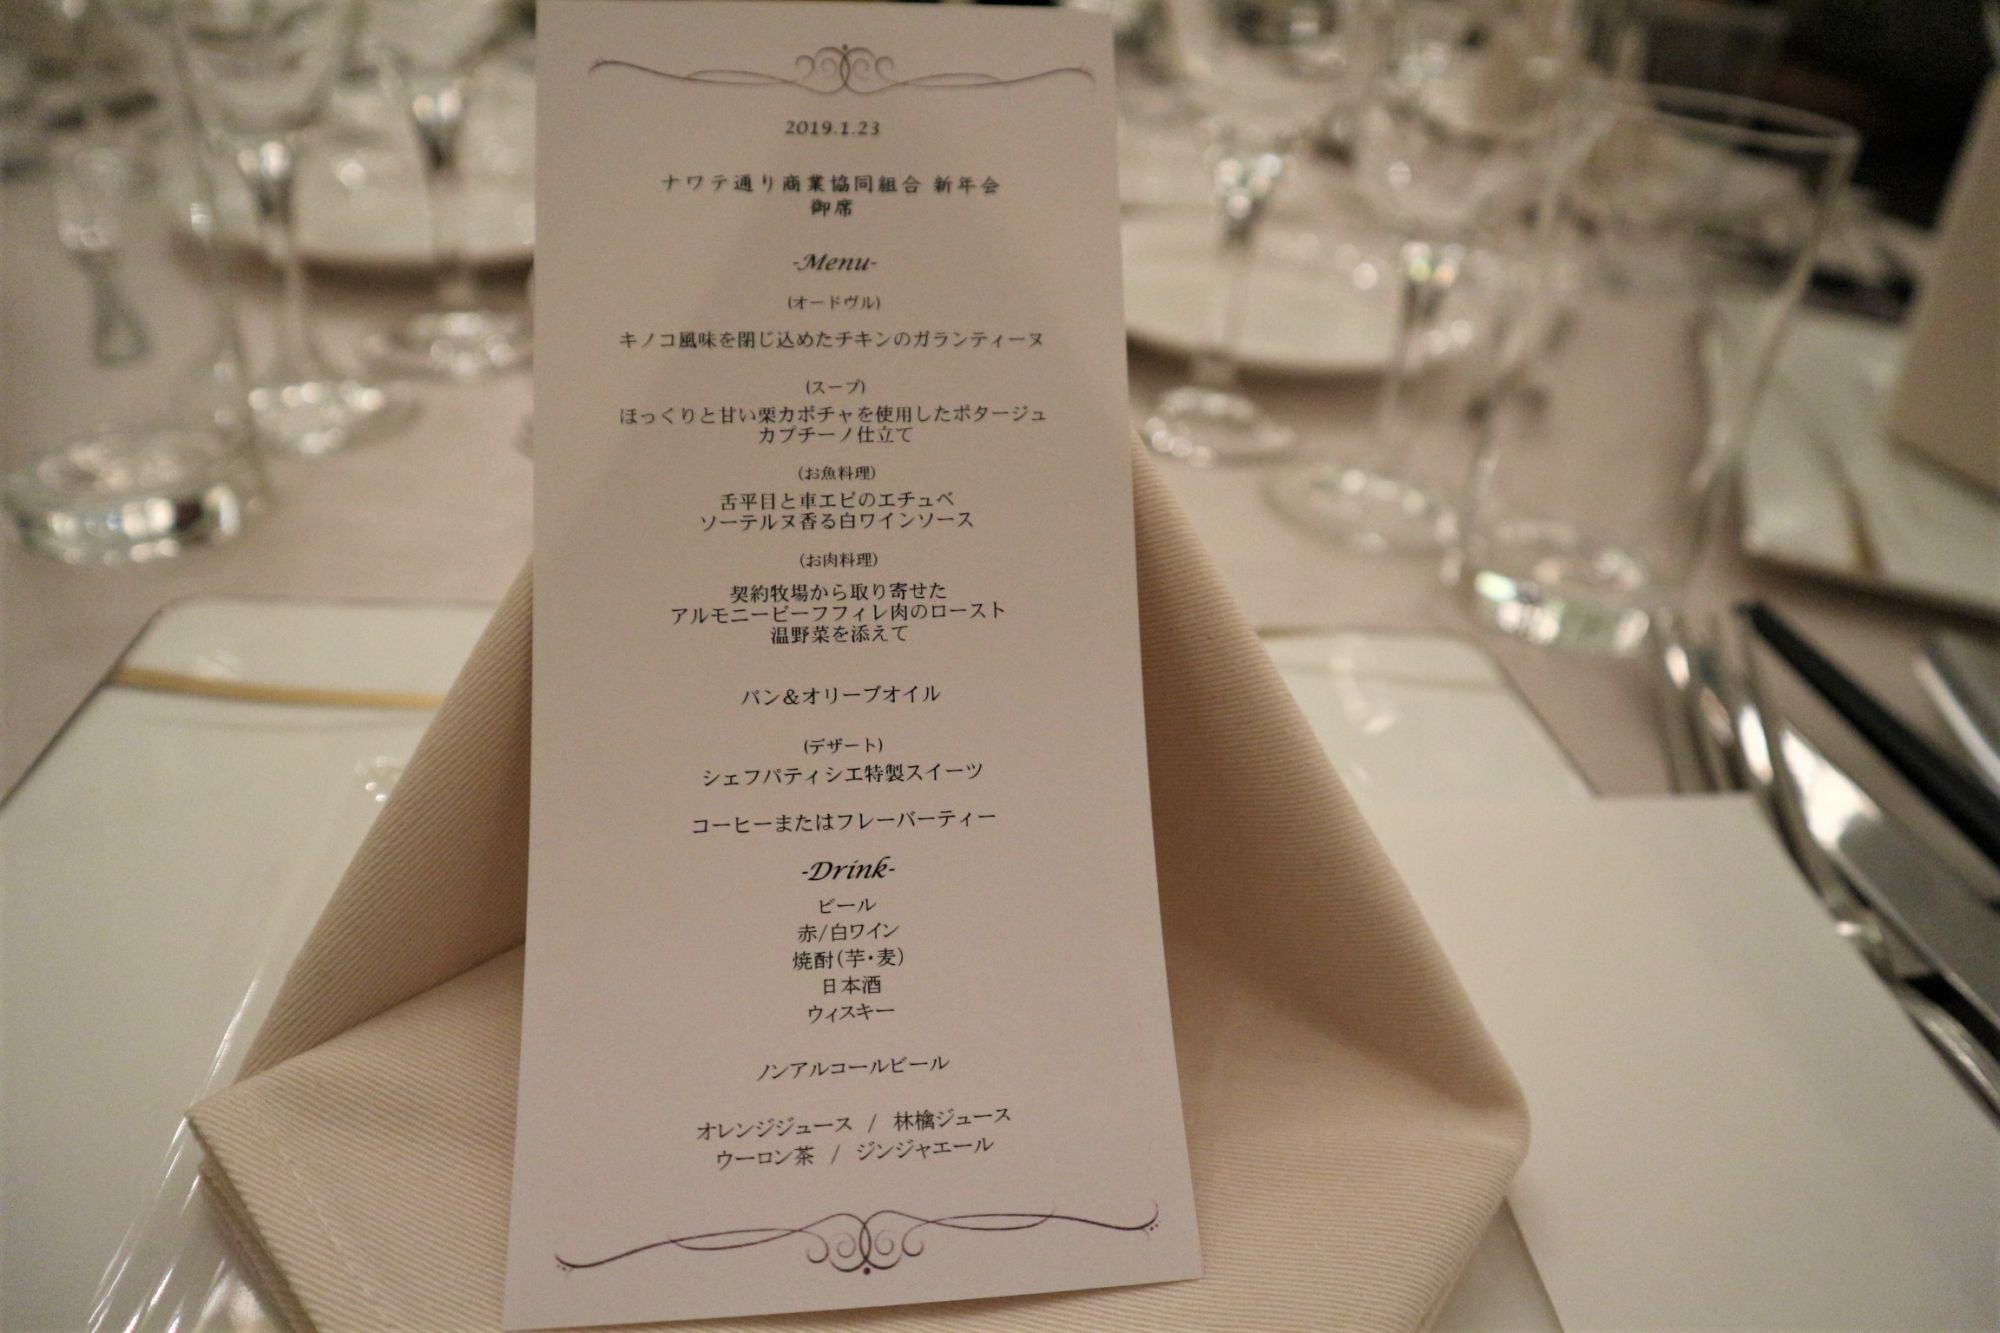 2019.1.23
ナワテ通り商業協同組合 新年会
御席
-Menu-
(オードヴル)
キノコ風味を閉じ込めたチキンのガランティーヌ
(スープ)
ほっくりと甘い栗カボチャを使用したポタージュ
カプチーノ仕立て
(お魚料理)
舌平目と車エビのエチュベ
ソーテルヌ香る白ワインソース
(お肉料理)
契約牧場から取り寄せた
アルモニービーフフィレ肉のロースト
温野菜を添えて
パン＆オリーブオイル
(デザート)
シェフパティシエ特製スイーツ
コーヒーまたはフレーバーティー
-Drink-
ビール
赤/白ワイン
焼酎(芋・麦)
日本酒
ウィスキー
ノンアルコールビール
オレンジジュース / 林檎ジュース
ウーロン茶 / ジンジャエール